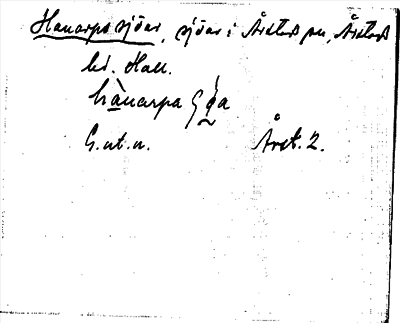 Hanarpssjöar, sjöar i Årstad sn, Årstads
hd. Hall.
hànarpa
G. ut. n. Årst. 2.